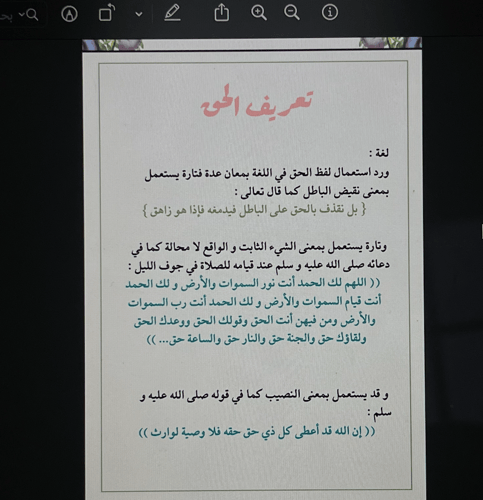 تعريف الحق
لغة :
ورد استعمال لفظ الحق في اللغة بمعان عدة فتارة يستعمل
بمعنى نقيض الباطل كما قال تعالى :
{ بل نقذف بالحق على الباطل فيدمغه فإذا هو زاهق }
وتارة يستعمل بمعنى الشيء الثابت و الواقع لا محالة كما في
دعائه صلى الله عليه و سلم عند قيامه للصلاة في جوف الليل :
(( اللهم لك الحمد أنت نور السموات والأرض و لك الحمد
أنت قيام السموات والأرض و لك الحمد أنت رب السموات
والأرض ومن فيهن أنت الحق وقولك الحق ووعدك الحق
ولقاؤك حق والجنة حق والنار حق والساعة حق... ))
و قد يستعمل بمعنى النصيب كما في قوله صلى الله عليه و
سلم :
(( إن الله قد أعطى كل ذي حق حقه فلا وصية لوارث ))